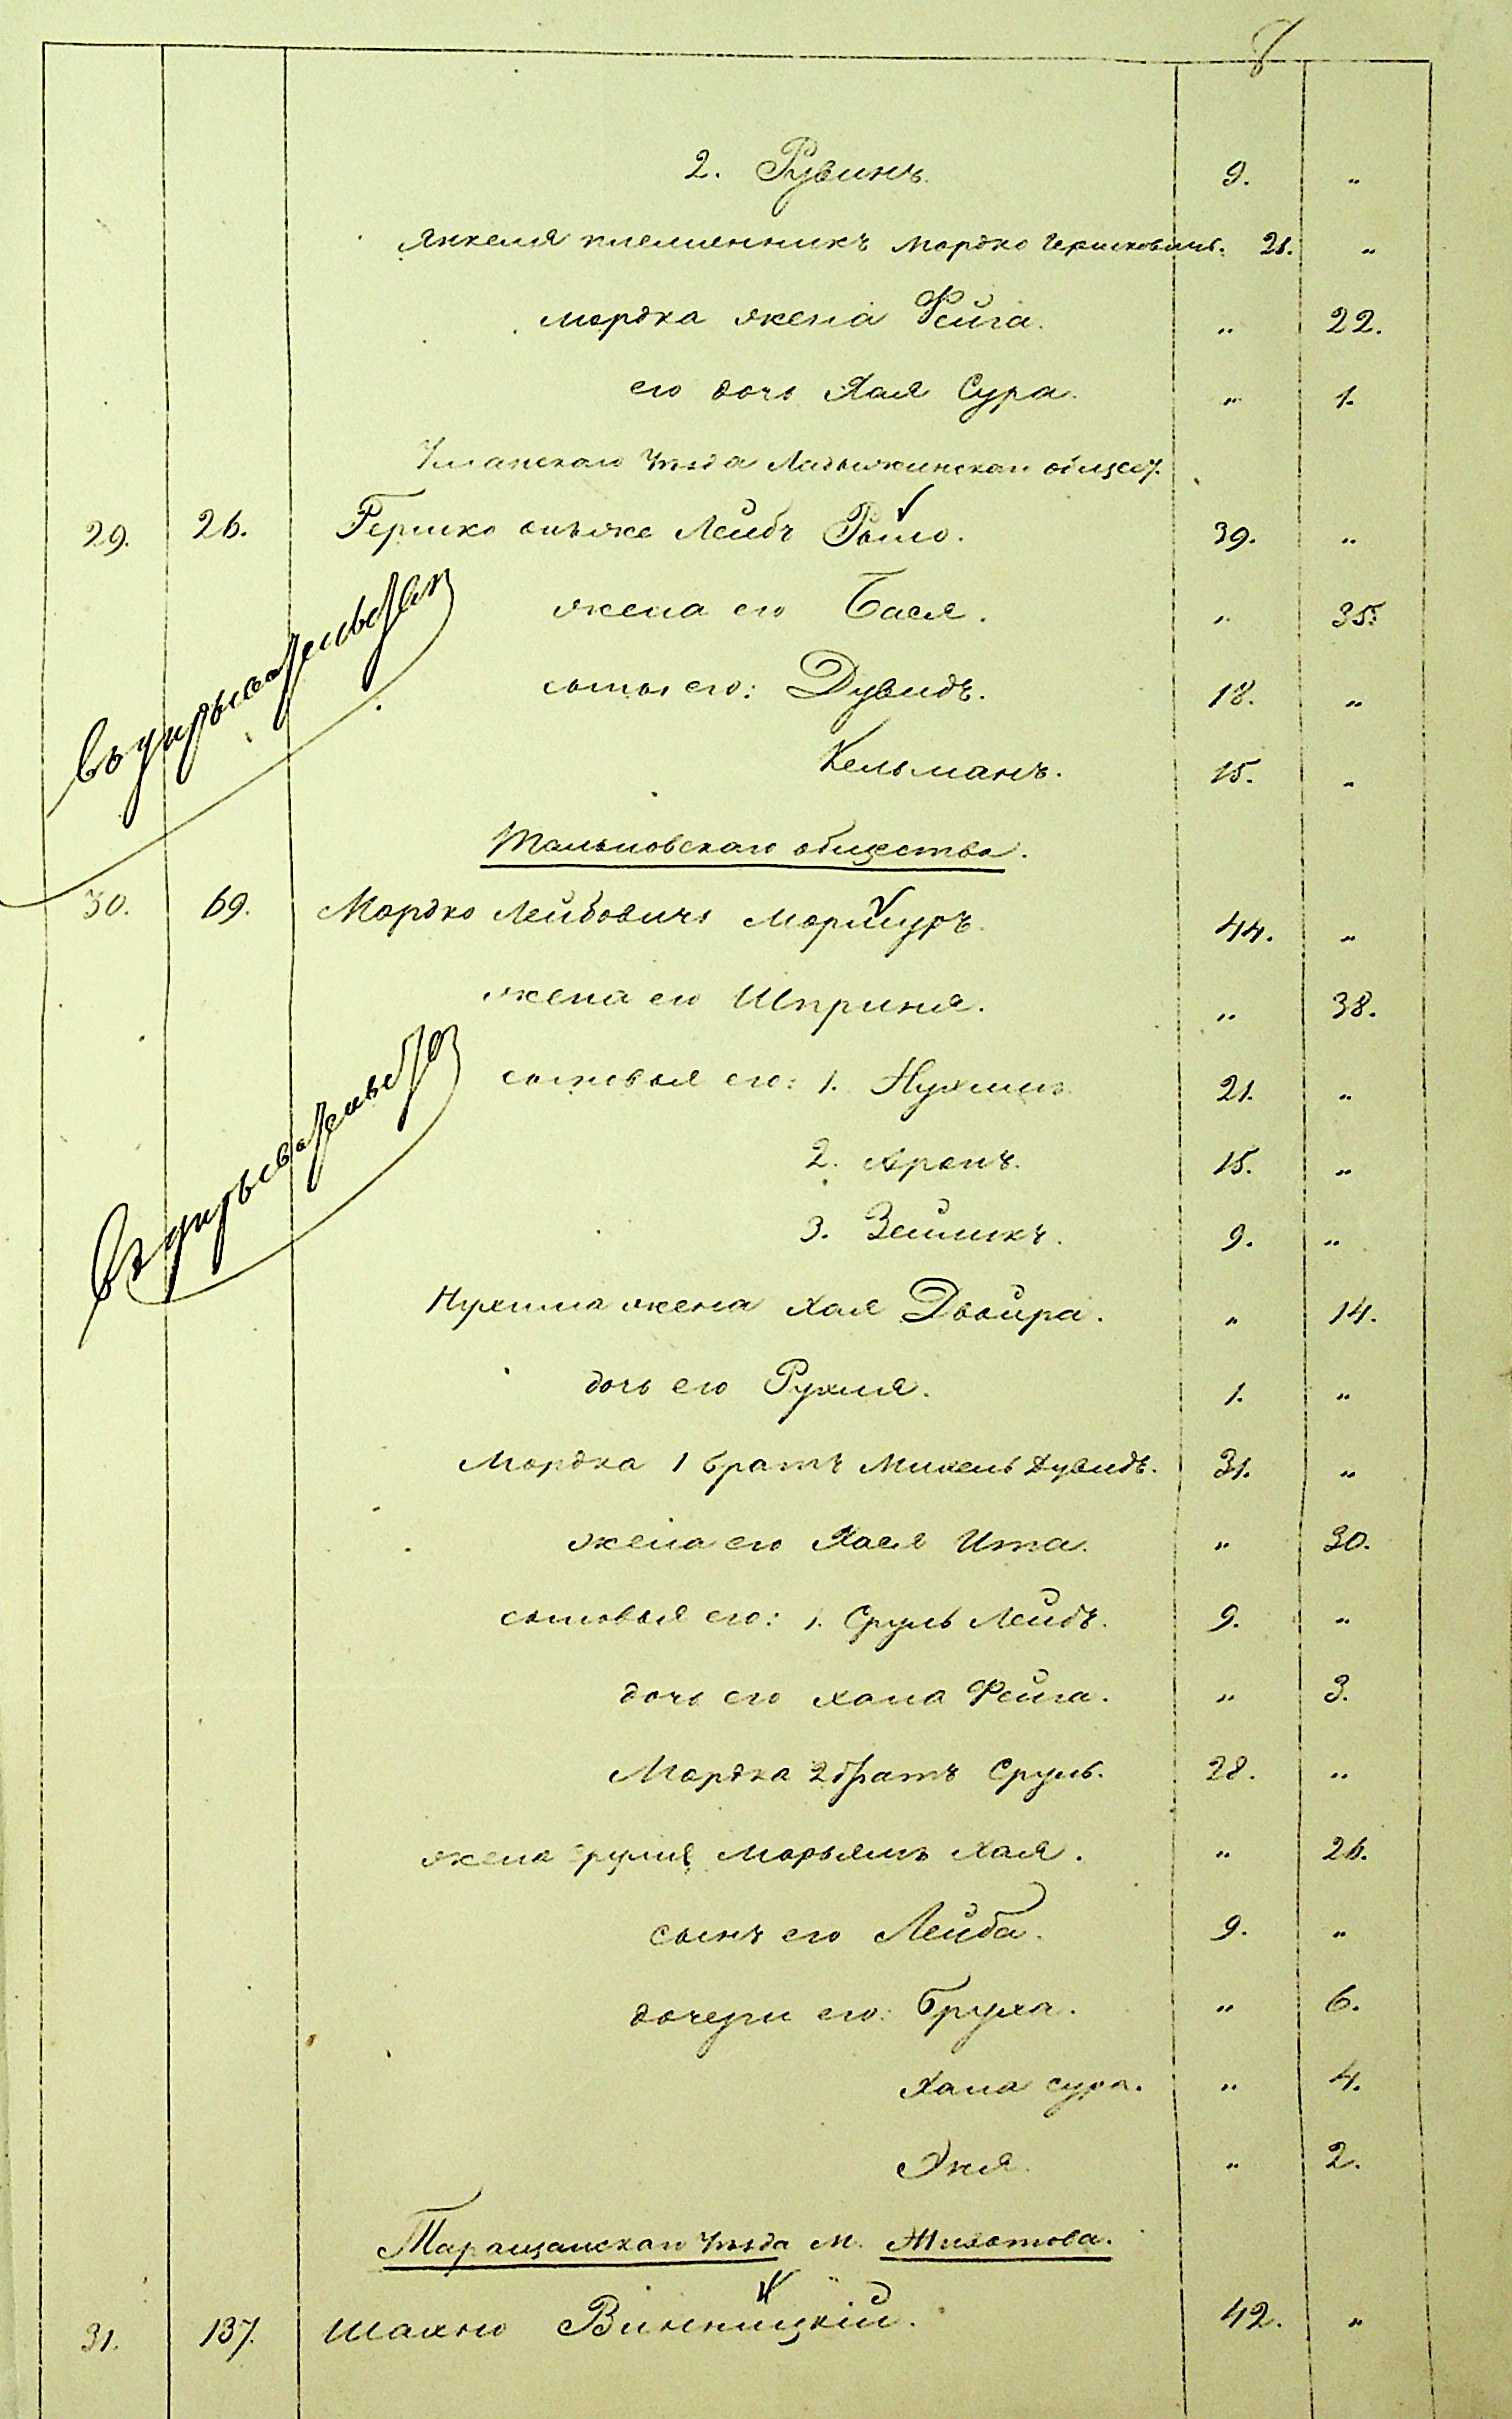 8
2. Рувинъ. 9. "
Янкеля племенникъ Мордко Гершковичъ. 21. "
Мордка жена Фейга. " 22.
его дочь Хая Сура. " 1.
Уманскаго Уѣзда Ладыжинскаго общест.
29. 26. Гершко онъ же Лейбъ 39. "
жена его Бася. " 35.
сыны его: Дувидъ. 18. "
Кельманъ. 15. "
Тальновскаго общества.
30. 69. Мордко Лейбовичъ 44. "
жена его Шприня. " 38.
сыновья его: 1. Нухимъ 21. "
2. Аронъ. 15. "
3. Зейликъ. 9. "
Нухима жена Хая Двойра. " 14.
дочь его Рухля. 1. "
Мордка 1 братъ Михель Дувидъ. 31. "
жена его Хася Ита. " 30.
сыновья его: 1. Сруль Лейбъ. 9. "
дочь его Хана Фейга. " 3.
Мордка 2 братъ Сруль. 28. "
жена Сруля Марьямъ Хая. " 26.
сынъ его Лейба. 9. "
дочери его: Бруха. " 6.
Хана Сура. " 4.
Эня. " 2.
Таращанскаго Уѣзда м. Жидотова.
31. 137. Шахно Винницкій. 42. "